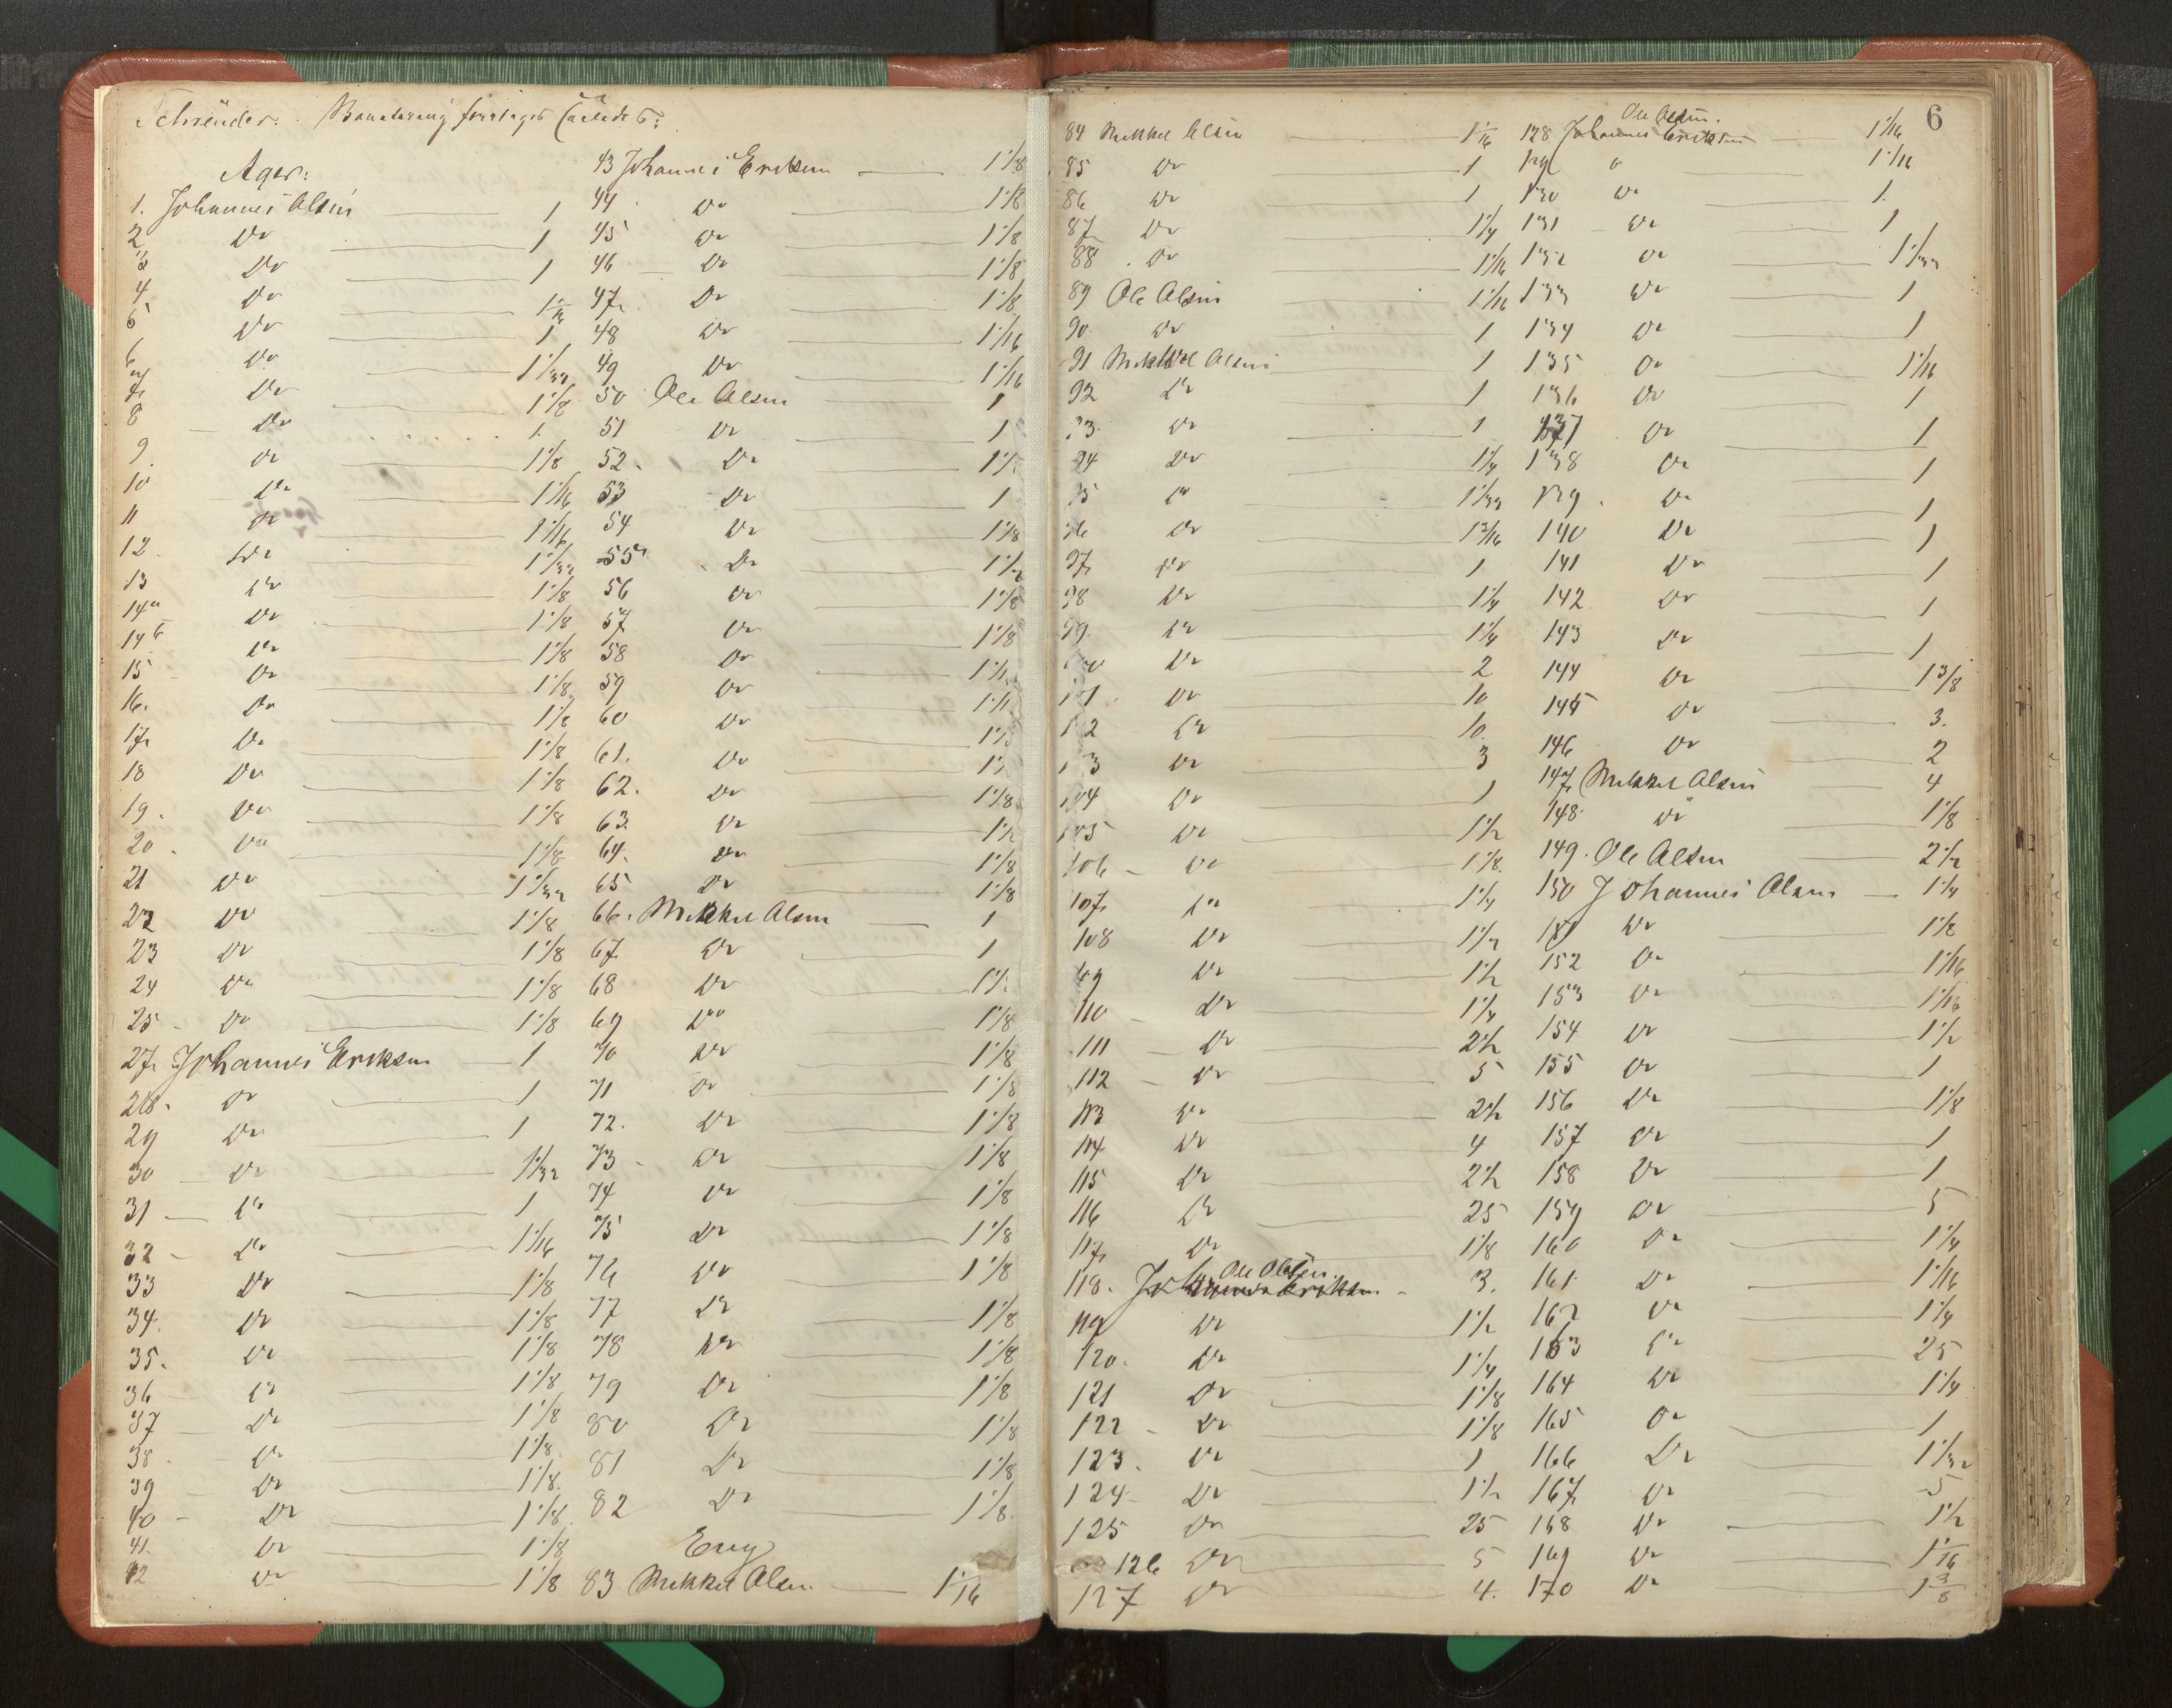 Schrøder. Bonitering foretages saaledes:
Ager:
1. Johannes Olsen 1
2 Do 1
3 Do 1
4 Do 1 1/16
5 Do 1
6 Do 1 1/32
7 Do 1 1/8
8 Do 1
9 Do 1 1/8
10 Do 1 1/16
11 Do 1 1/16
12 Do 1 1/32
13 Do 1 1/8
14a Do 1 1/8
14b Do 1 1/8
15 Do 1 1/8
16. Do 1 1/8
17 Do 1 1/8
18 Do 1 1/8
19. Do 1 1/8
20. Do 1 1/8
21 Do 1 1/32
22 Do 1 1/8
23 Do 1 1/8
24 Do 1 1/8
25 Do 1 1/8
27 Johannes Eriksen 1
28. Do 1
29 Do 1
30 Do 1 1/32
31 Do 1
32 Do 1 1/16
33 Do 1 1/8
34. Do 1 1/8
35. Do 1 1/8
36 Do 1 1/8
37 Do 1 1/8
38 Do 1 1/8
39 Do 1 1/8
40 Do 1 1/8
41. Do 1 1/8
42 Do 1 1/8
43 Johannes Eriksen 1 1/8
44 Do 1 1/8
45 Do 1 1/8
46 Do 1 1/8
47 Do 1 1/8
48 Do 1 1/16
49 Do 1 1/16
50 Ole Olsen 1
51 Do 1
52. Do
53 Do 1
54 Do 1 1/8
55 Do 1 1/2
56 Do 1 1/8
57 Do 1 1/8
58 Do
59 Do
60 Do
61. Do
62. Do 1 1/8
63. Do 1 1/2
64. Do 1 1/8
65 Do 1 1/8
66. Mikkel Olsen 1
67. Do 1
68 Do
69 Do 1 1/8
70 Do 1 1/8
71 Do 1 1/8
72. Do 1 1/8
73 Do 1 1/8
74 Do 1 1/8
75 Do 1 1/8
76 Do 1 1/8
77 Do 1 1/8
78 Do 1 1/8
79 Do 1 1/8
80 Do 1 1/8
81 Do 1 1/8
82 Do 1 1/8
Eng
83 Mikkel Olsen 1 1/16
6
84 Mikkel Olsen 1 1/16
85 Do 1
86 Do 1
87 Do 1 1/4
88. Do 1 1/16
89 Ole Olsen 1 1/16
90 Do 1
91 Mikkel Olsen 1
92 Do 1
93. Do 1
94 Do 1 1/4
95 Do 1 1/32
96 Do 1 3/16
97 Do 1
98 Do 1 1/4
99 Do 1 1/4
100 Do 2
101. Do 10
102 Do 10.
103 Do 3
104 Do 1
105 Do 1 1/2
106 Do 1 1/8
107 Do 1 1/4
108 Do 1 1/2
109 Do 1 1/2
110 Do 1 1/4
111 Do 2 1/2
112 Do 5
113 Do 2 1/2
114 Do 4
115 Do 2 1/2
116 Do 25
117 Do 1 1/8
Ole Olsen
118. Johannes Eriksen 3.
119 Do 1 1/2
120. Do 1 1/4
121 Do 1 1/8
122 Do 1 1/8
123. Do 1
124 Do 1 1/2
125 Do 25
126 Do 5
127 Do 4.
Ole Olsen.
128 Johannes Eriksen 1 1/16
129 Do 1 1/16
130 Do 1.
131 Do 1
132 Do 1 1/32
133 Do 1
134 Do 1
135 Do 1 1/16
136 Do 1
137 Do 1
138 Do 1
139. Do 1
140 Do 1
141 Do 1
142 Do 1
143 Do 1
144 Do 1 3/8
145 Do 3.
146 Do 2
147 Mikkel Olsen 4
148. Do 1 1/8
149. Ole Olsen 2 1/2
150 Johannes Olsen 1 1/4
151 Do 1 1/8
152 Do 1 1/16
153 Do 1 1/16
154 Do 1 1/2
155 Do 1
156 Do 1 1/8
157 Do 1
158 Do 1
159 Do 5
160 Do 1 1/4
161. Do 1 1/16
162 Do 1 1/4
163 Do 25
164 Do 1 1/4
165 Do 1
166 Do 1 1/32
167 Do 5
168 Do 1 1/2
169 Do 1 1/16
170 Do 1 3/8